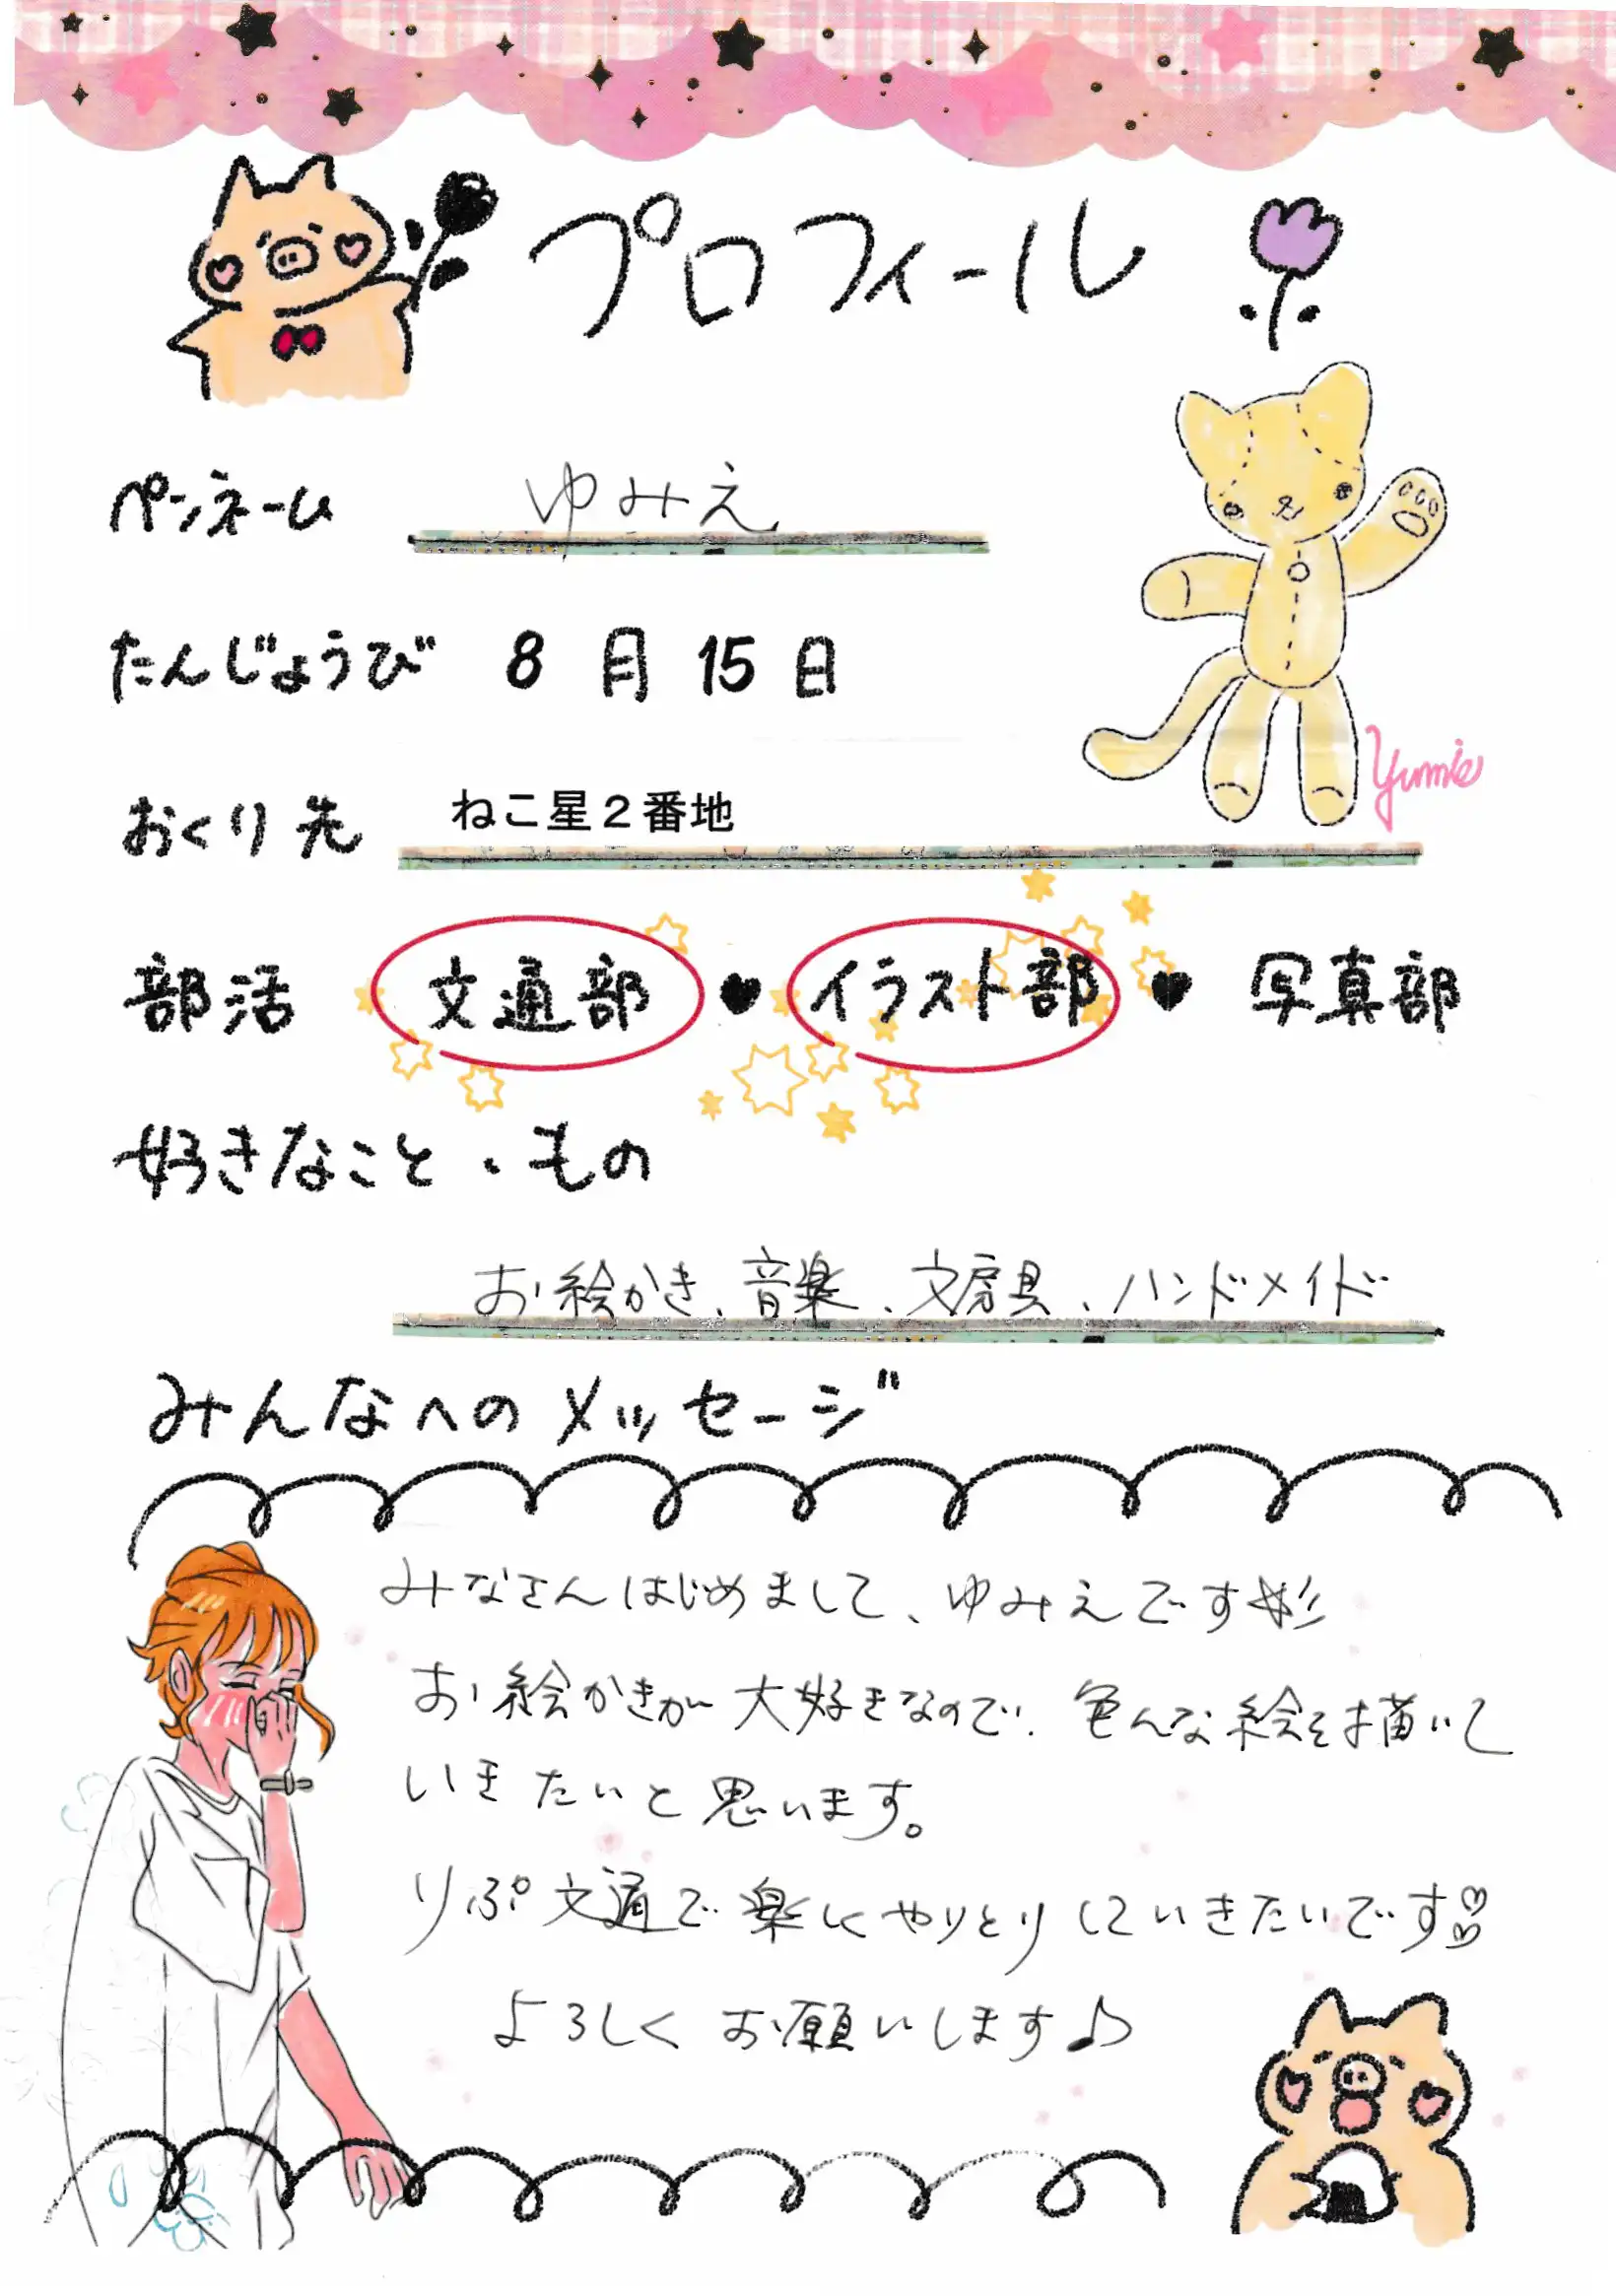 プロフィール
ペンネーム ゆみえ
たんじょうび 8月15日
Yumie
おくり先 ねこ星2番地
部活 文通部 ♥ イラスト部 ♥ 写真部
好きなこと・もの
お絵かき、音楽、文房具、ハンドメイド
みんなへのメッセージ
みなさんはじめまして、ゆみえです
お絵かきが大好きなので、色んな絵を描いて
いきたいと思います。
りぷ文通で楽しくやりとりしていきたいです♡
よろしくお願いします♪